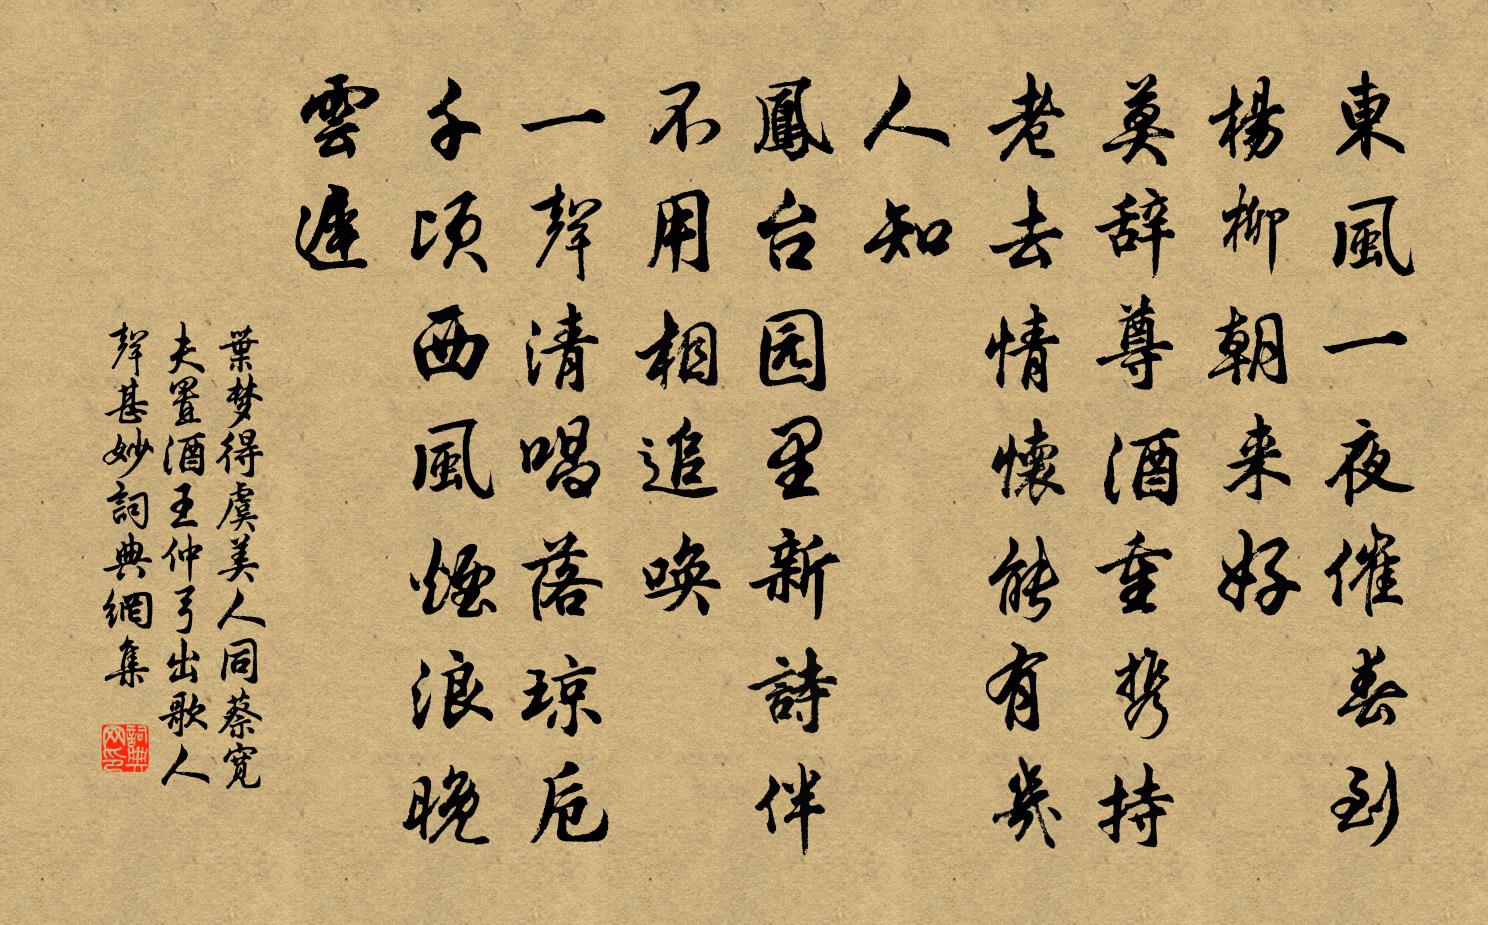 東風一夜催春到
楊柳朝来好
莫辞尊酒重携持
老去情懷能有幾
人知
鳳台园里新詩伴
不用相追唤
一聲清唱落琼卮
千頃西風煙浪晚
雲遲
葉梦得虞美人同蔡寬
夫置酒王仲弓出歌人
聲甚妙詞典網集
詞典网印